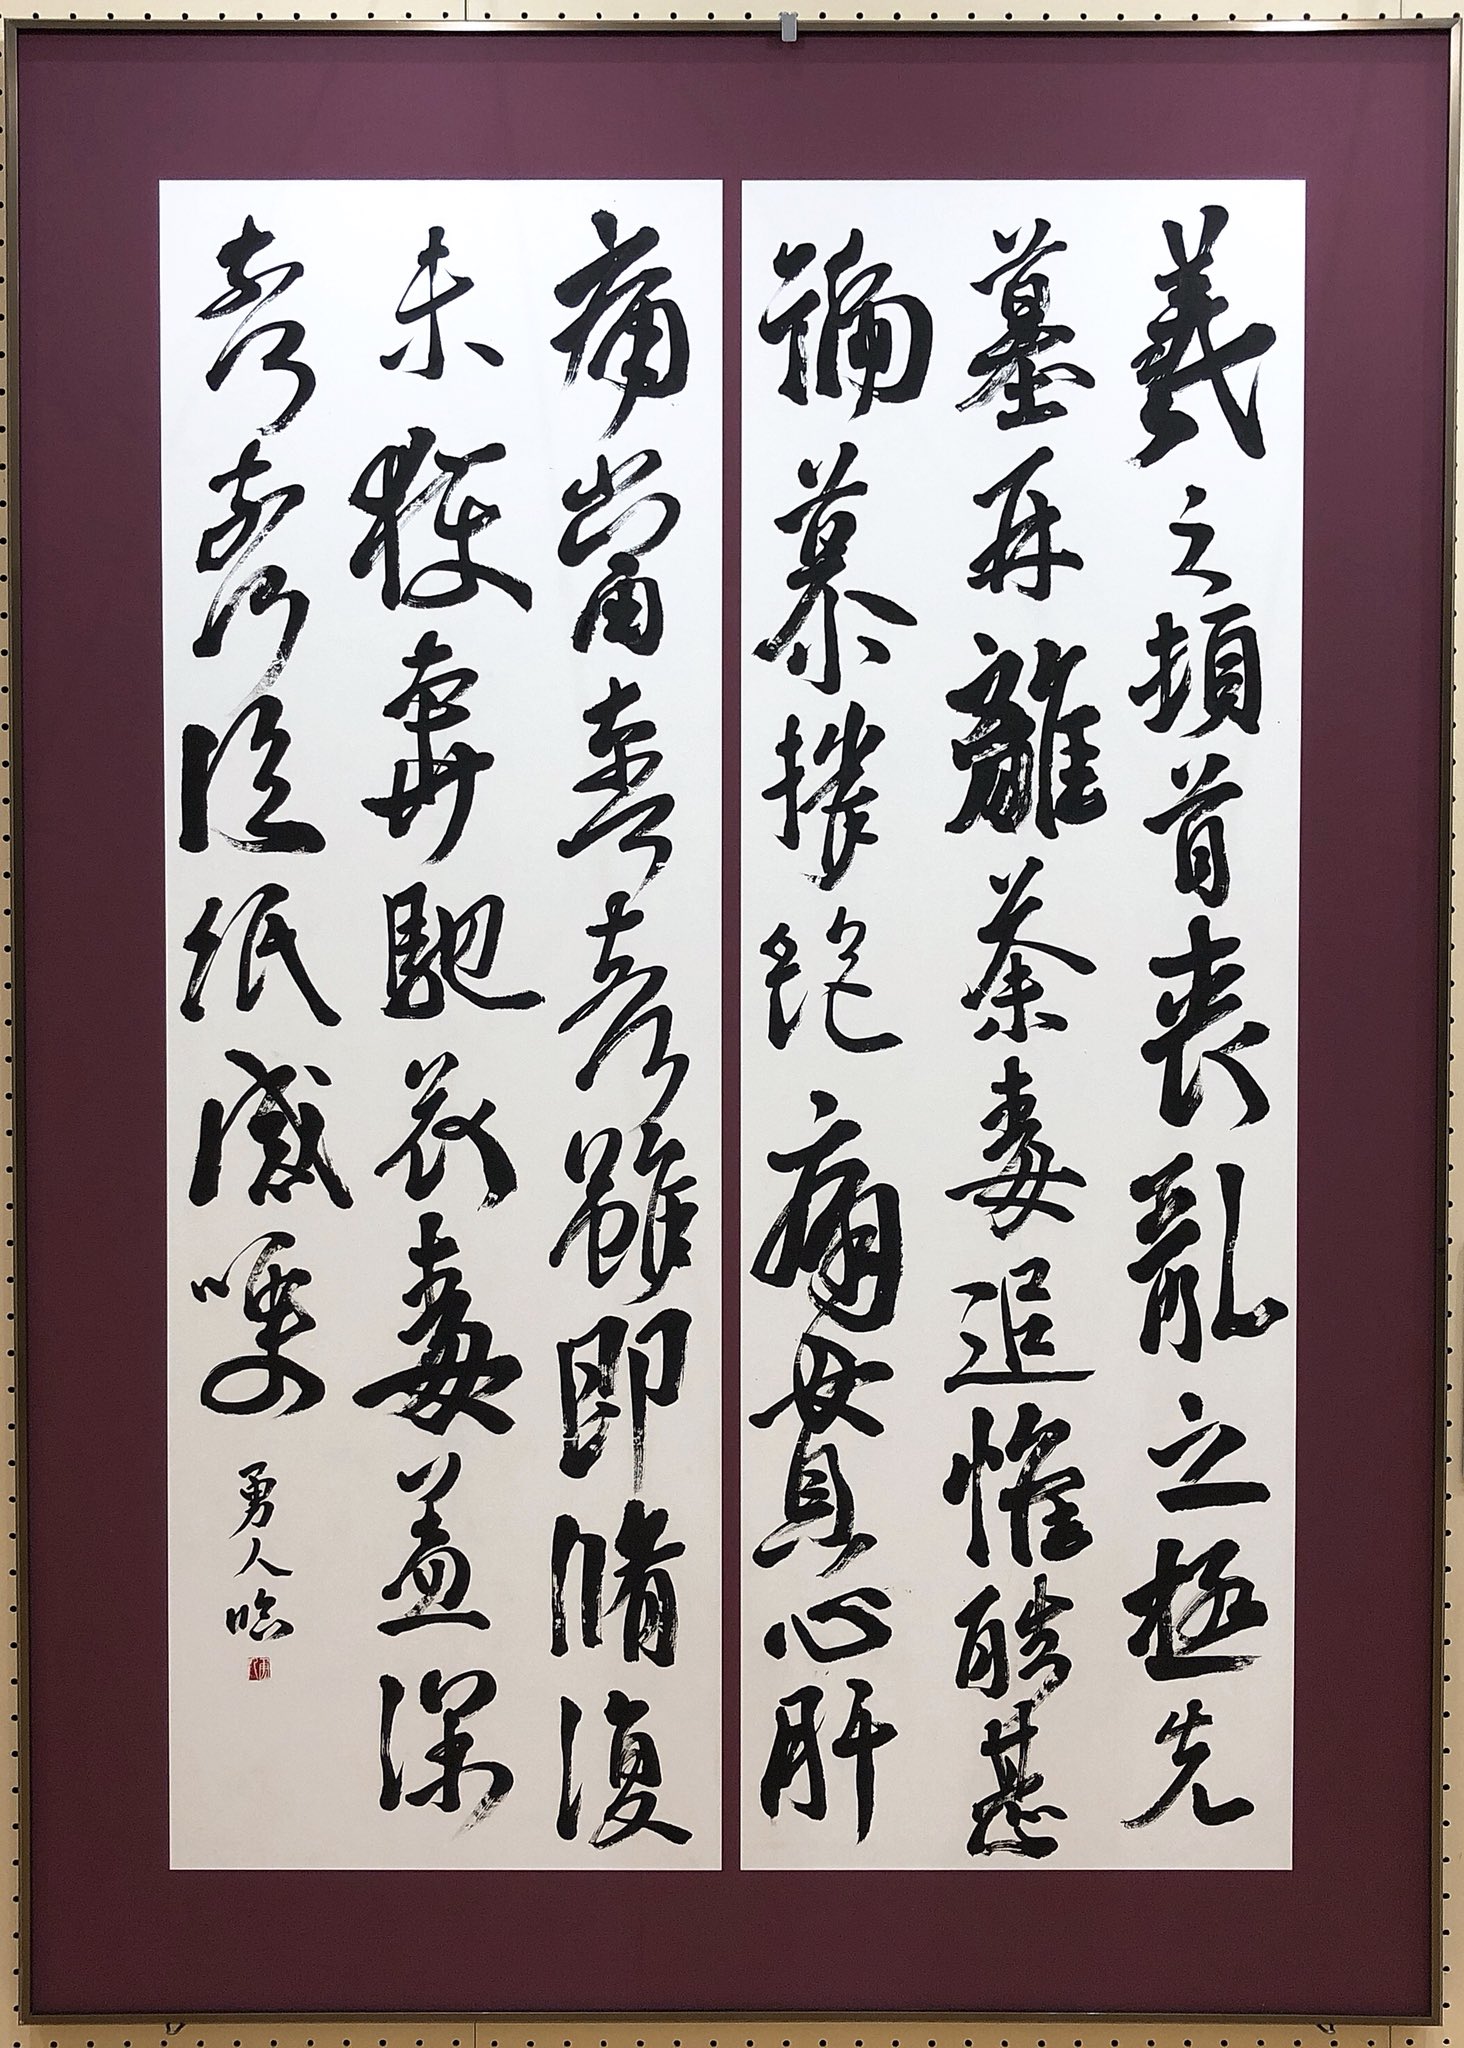 羲之頓首喪亂之極先
墓再離荼毒追惟酷甚
號慕摧絶痛貫心肝
痛當奈何奈何雖即脩復
未獲奔馳哀毒益深
奈何奈何臨紙感哽
勇人臨